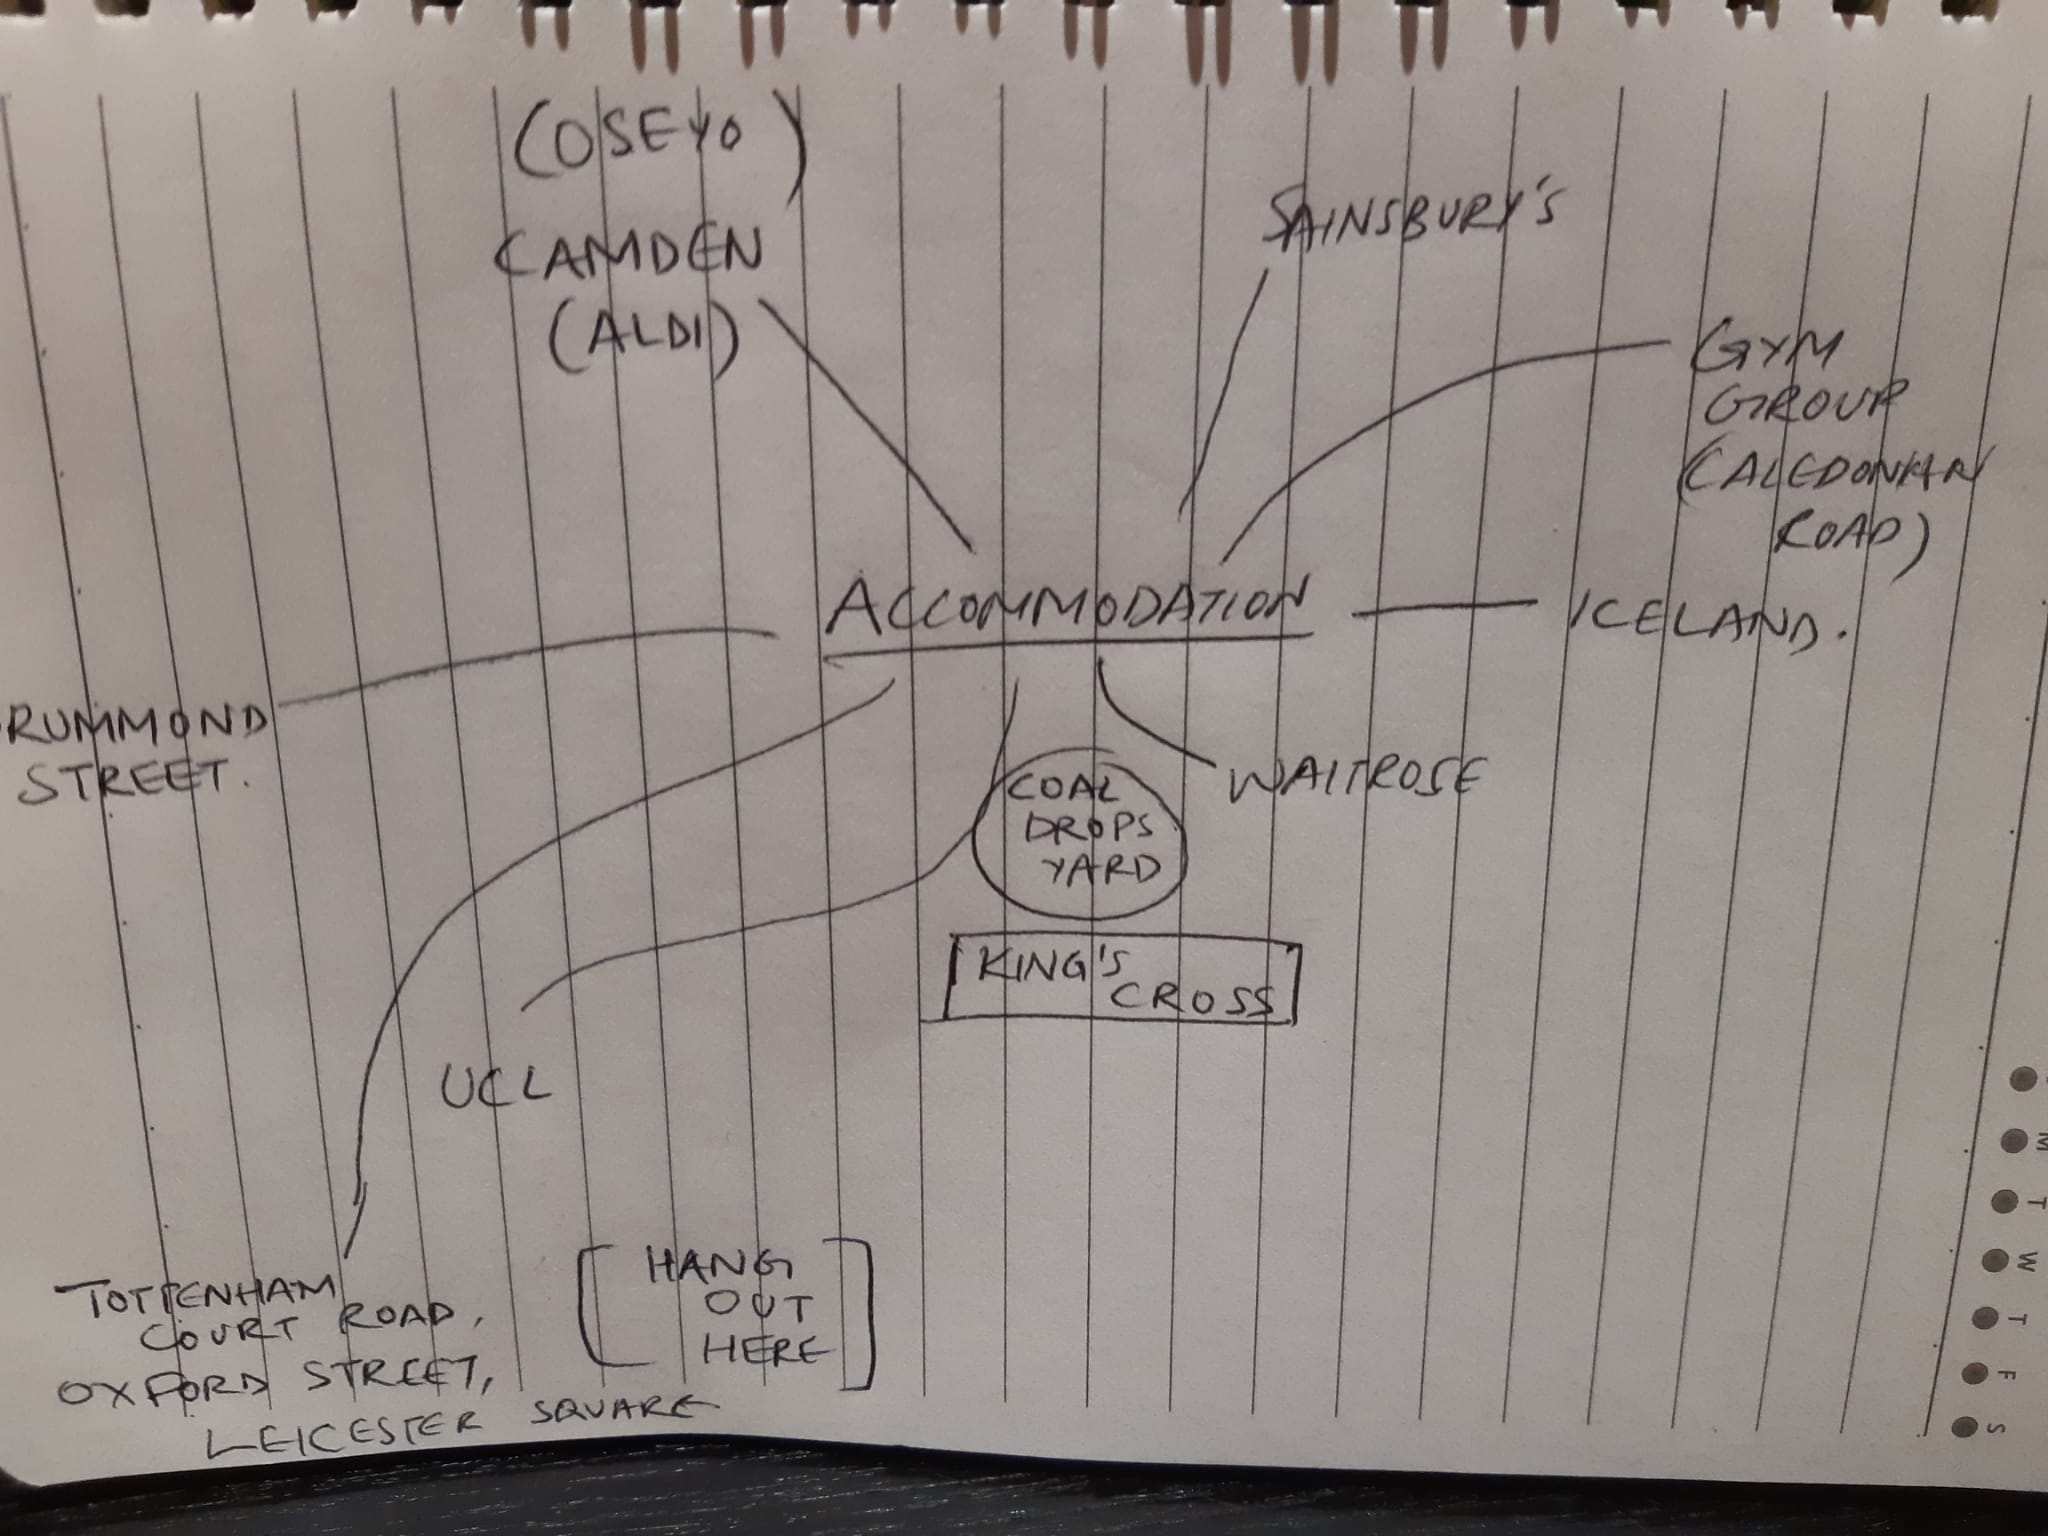 (OSEYO)
CAMDEN
(ALDI)
SAINSBURY'S
GYM
GROUP
(CALEDONIAN
ROAD)
ACCOMMODATION
ICELAND.
DRUMMOND
STREET.
COAL
DROPS
YARD
WAITROSE
KING'S
CROSS
UCL
TOTTENHAM
COURT ROAD,
OXFORD STREET,
LEICESTER SQUARE
[HANG
OUT
HERE]
M
T
W
T
F
S